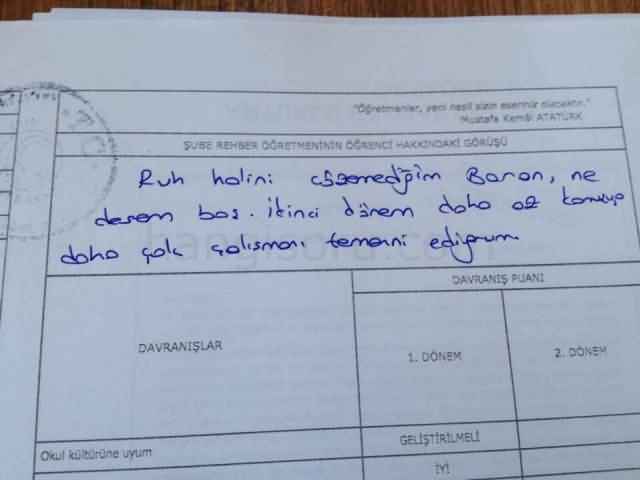 "Öğretmenler, yeni nesil sizin eseriniz olacaktır."
Mustafa Kemal ATATÜRK
ŞUBE REHBER ÖĞRETMENİNİN ÖĞRENCİ HAKKINDAKİ GÖRÜŞÜ
Ruh halini çözemediğim Baran, ne
desem boş. İkinci dönem daha az konuşup
daha çok çalışmanı temenni ediyorum.
hangisoru.com
DAVRANIŞLAR
DAVRANIŞ PUANI
1. DÖNEM
2. DÖNEM
Okul kültürüne uyum
GELİŞTİRİLMELİ
İYİ